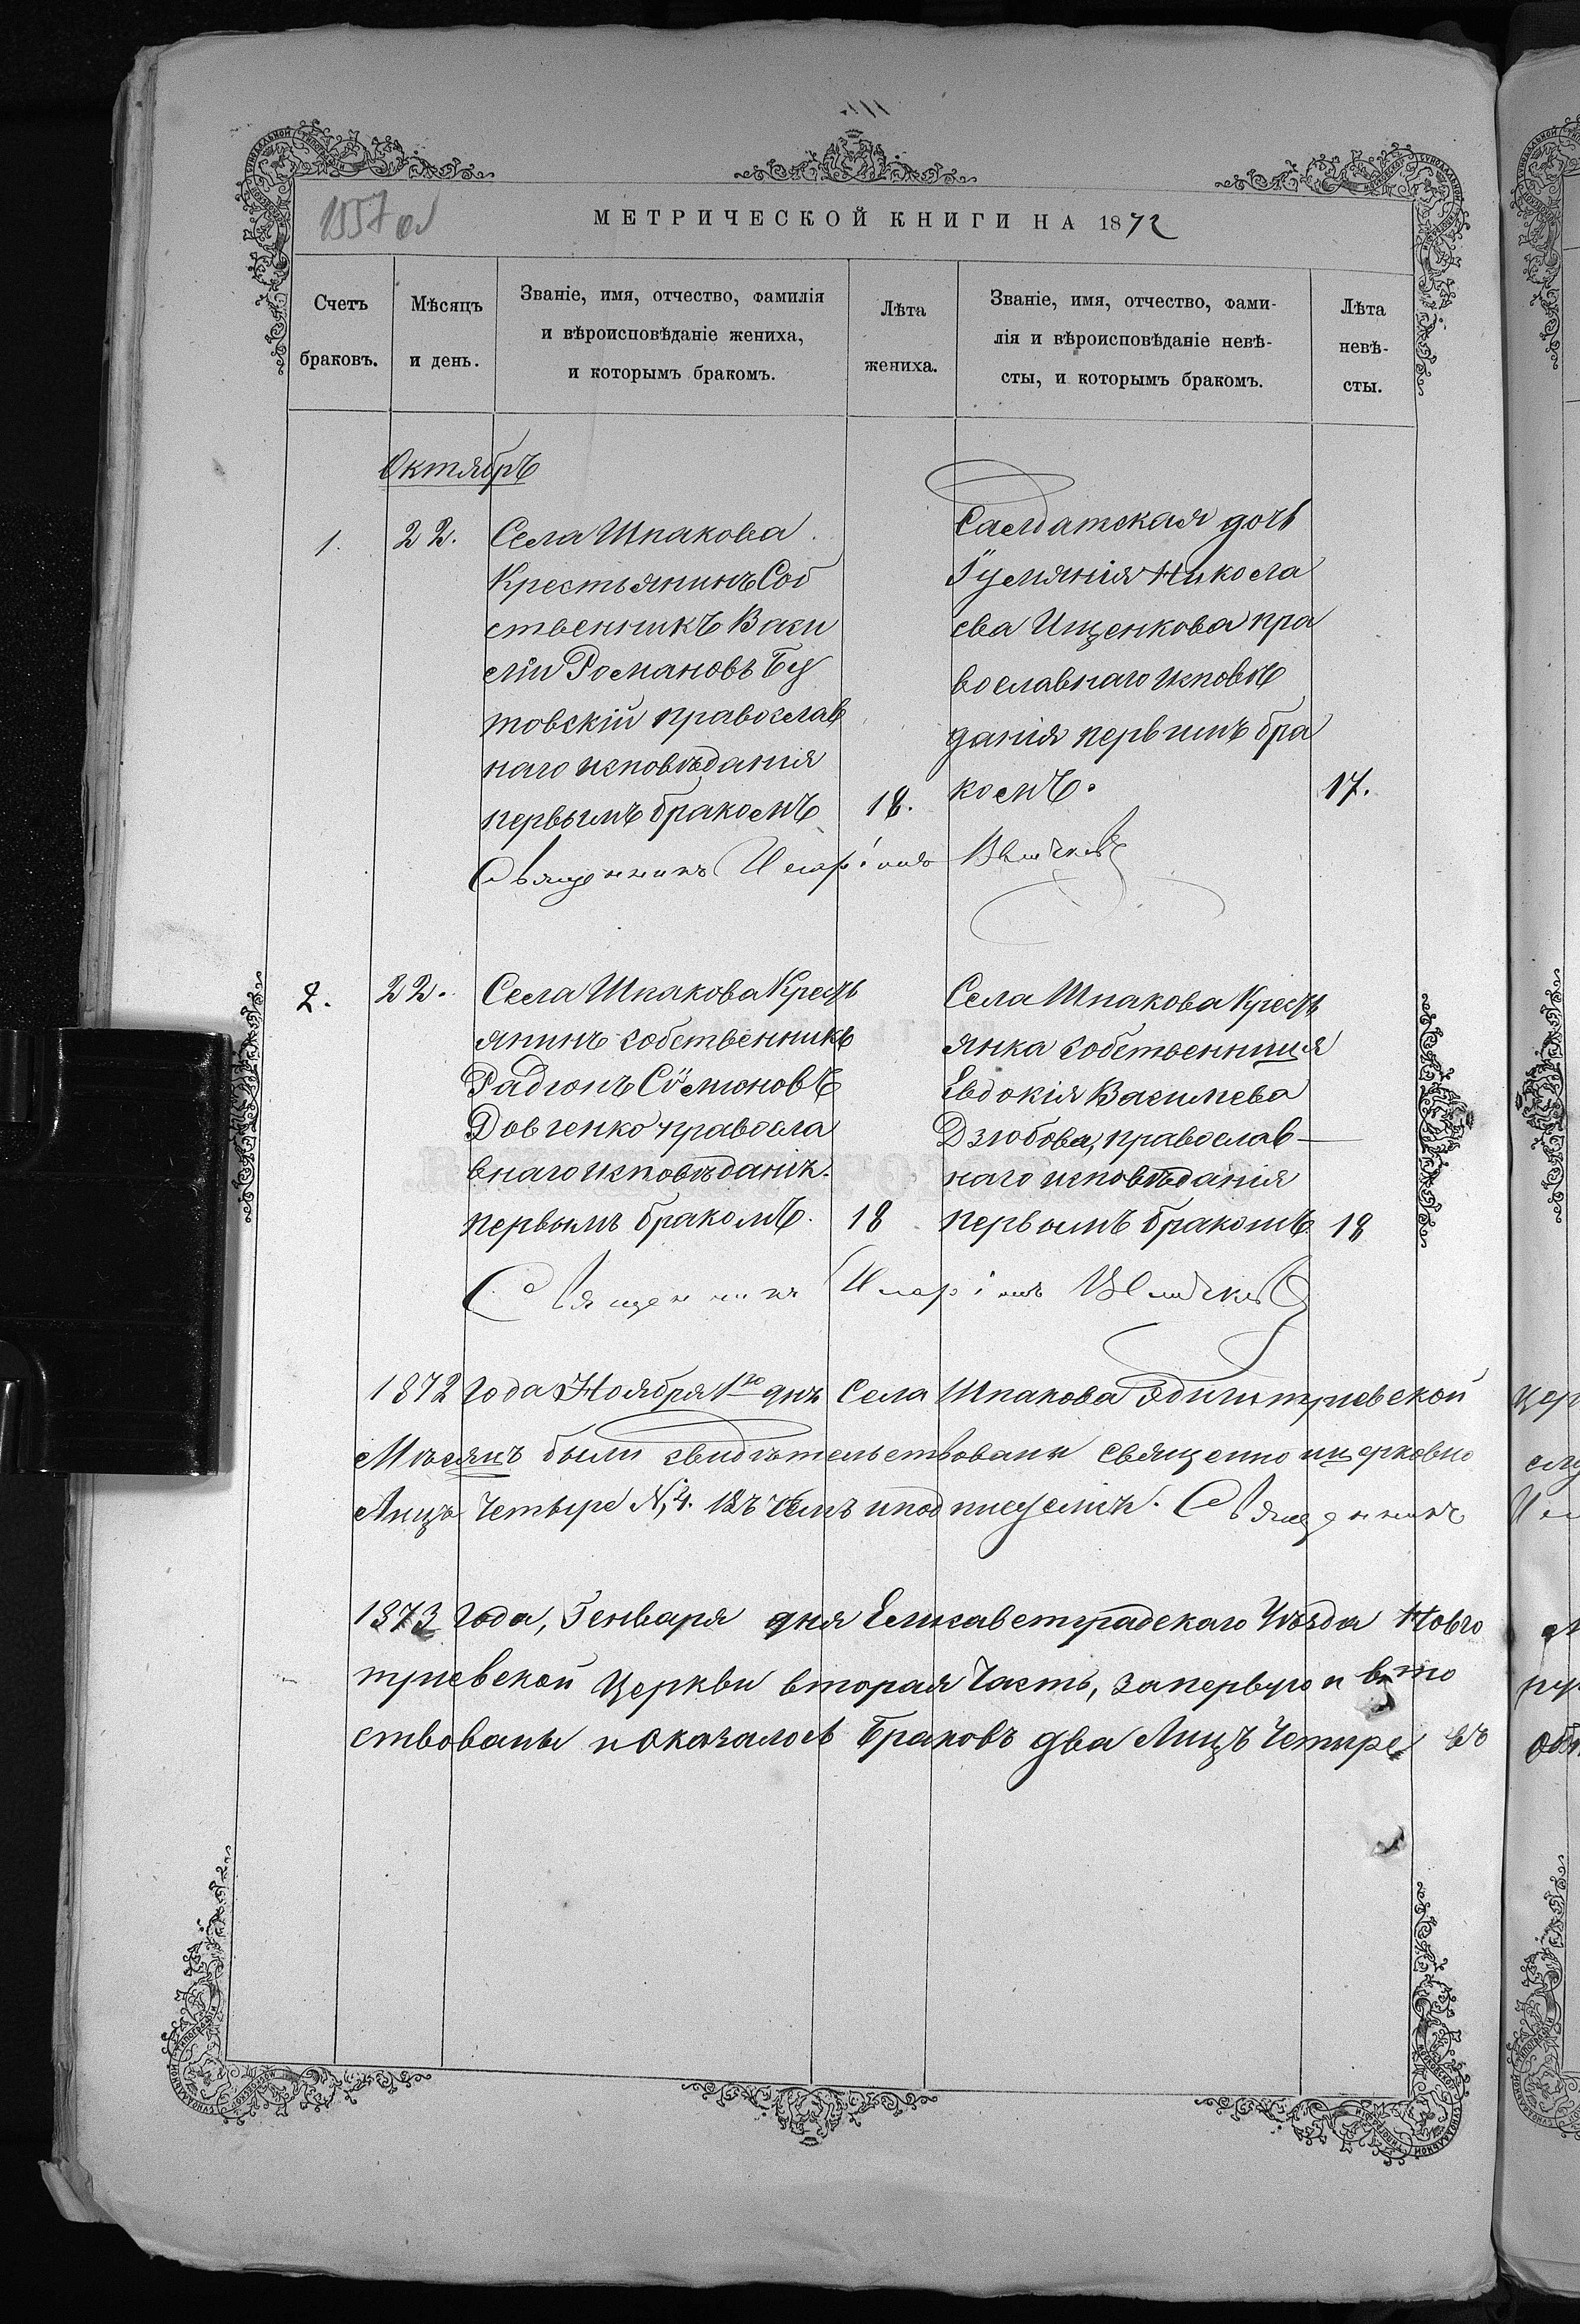 1557 об
МЕТРИЧЕСКОЙ КНИГИ НА 1872
Счетъ
браковъ.
Мѣсяцъ
и день.
Званіе, имя, отчество, фамилія
и вѣроисповѣданіе жениха,
и которымъ бракомъ.
Лѣта
жениха.
Званіе, имя, отчество, фами-
лія и вѣроисповѣданіе невѣ-
сты, и которымъ бракомъ.
Лѣта
невѣ-
сты.
Октябрь
1.
22.
Села Шпакова
Крестьянинъ Соб
ственникъ Васи
лій Романовъ Бу
товскій православ
наго исповѣданія
первымъ бракомъ
18.
Салдатская дочь
Гуліянія Никола
ева Ищенкова пра
вославнаго исповѣ
данія первимъ бра
комъ.
17.
Священникъ Иларіонъ
2.
22.
Села Шпакова Крест
янинъ собственникъ
Радіонъ Сѵмоновъ
Довгенко правосла
внаго исповѣданія.
первымъ бракомъ.
18
Села Шпакова Крест
янка собственница
Евдокія Васильева
Дзюбова, православ—
наго исповѣданія
первымъ бракомъ.
18
Священникъ Иларіонъ
1872 года Ноября 1го дня Села Шпакова Одигитріевской
Мѣсяцъ были свидѣтельствованы священно церковно
Лицъ Четыре №, 4. Въ чемъ и подписуемся. Священникъ
1873 года, Генваря дня Елисаветградскаго Уѣзда Новго
тріевской Церкви вторая часть, за первую и вто
ствованы и оказалось Браковъ два Лицъ Четыре въ